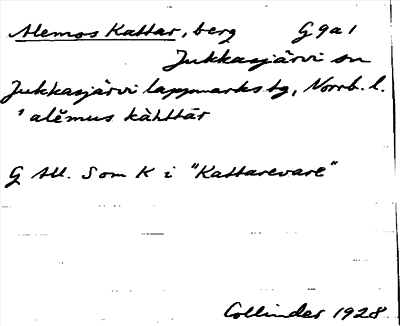 Alemos Kattar, berg G 9 a 1
Jukkasjärvi sn
Jukkasjärvi lappmarks tg, Norrb. l.
' alĕmus kàhttàr
G till. Som K i "Kattarevare"
Collinder 1928